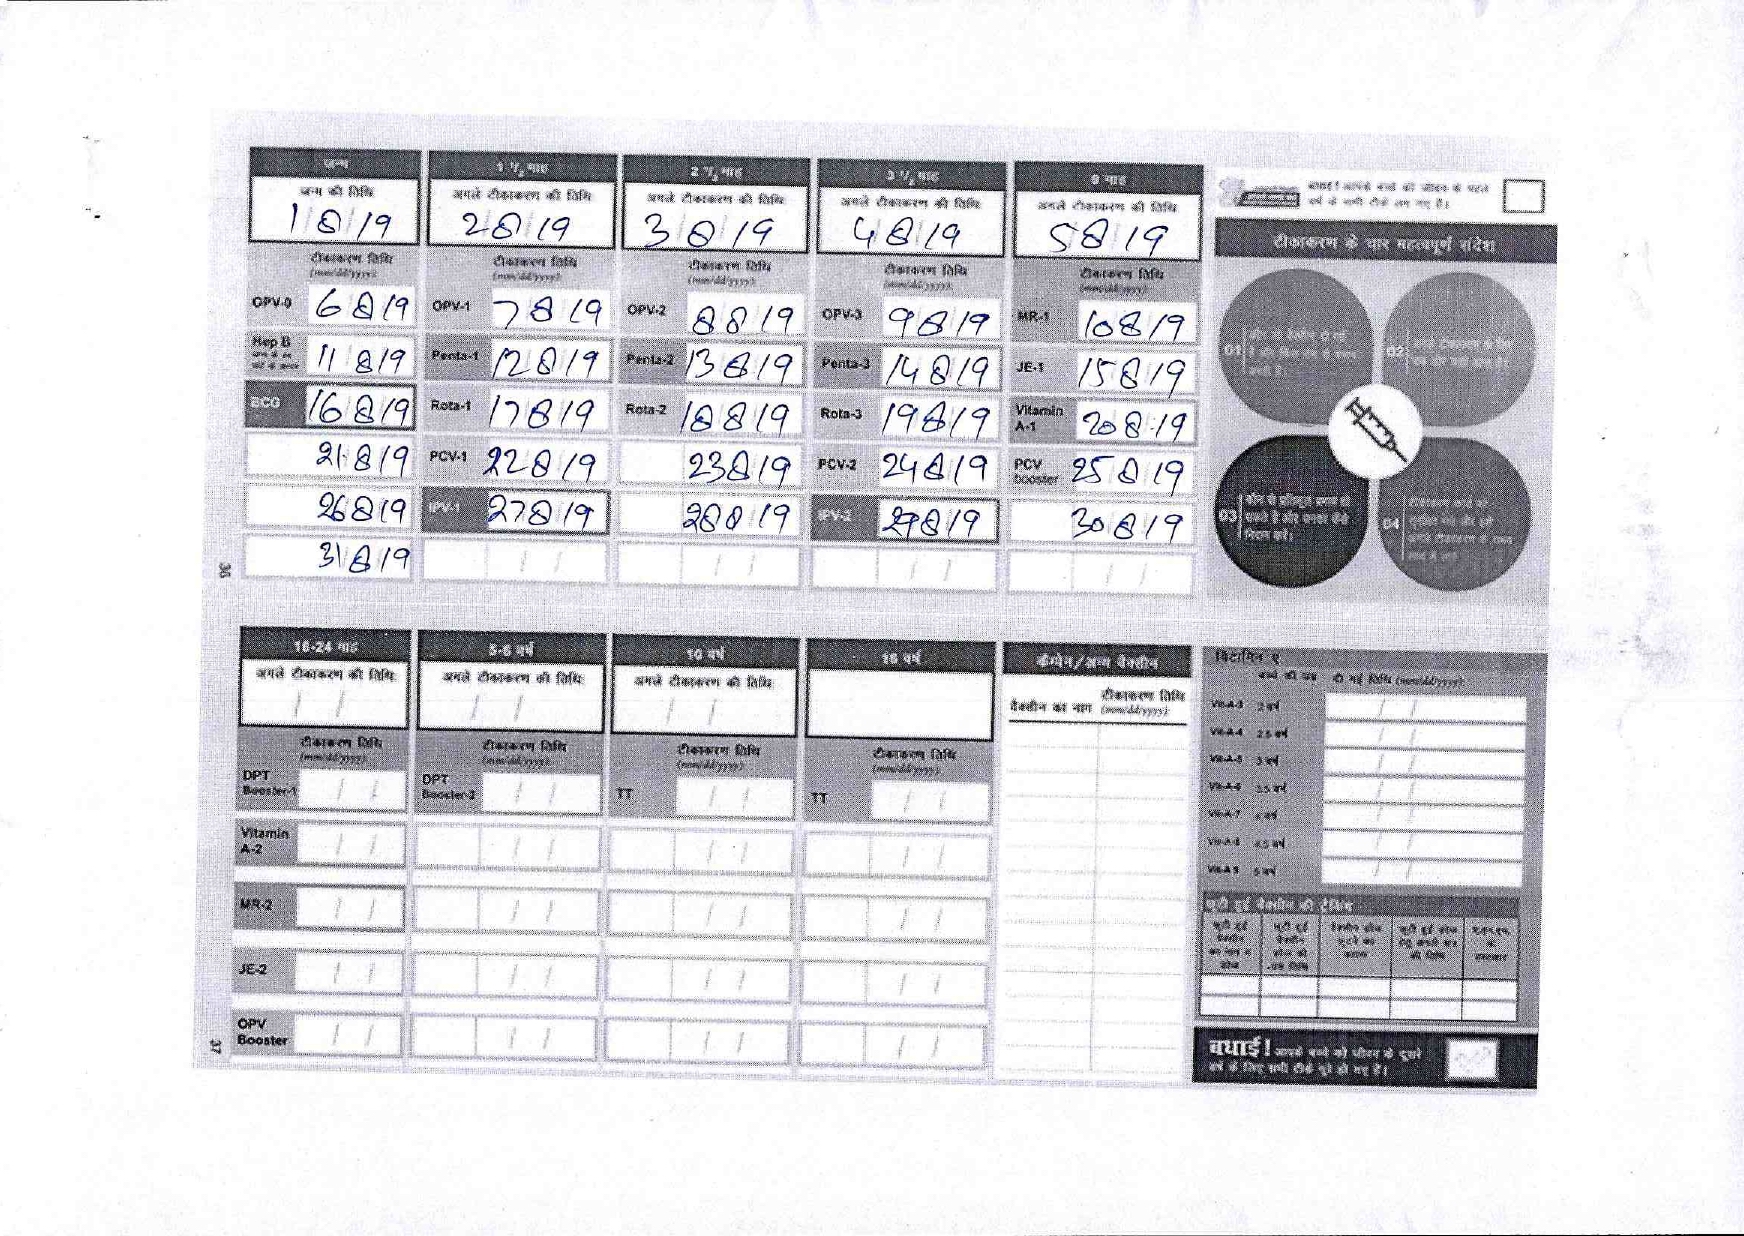 जन्म
जन्म की तिथि
1 8 19
टीकाकरण तिथि
(mm/dd/yyyy)
OPV-0 6 8 19
Hep B 11 8 19
BCG 16 8 19
21 8 19
26 8 19
31 8 19
1 1/2 माह
अगले टीकाकरण की तिथि
2 8 19
टीकाकरण तिथि
(mm/dd/yyyy)
OPV-1 7 8 19
Penta-1 12 8 19
Rota-1 17 8 19
PCV-1 22 8 19
IPV-1 27 8 19
2 1/2 माह
अगले टीकाकरण की तिथि
3 8 19
टीकाकरण तिथि
(mm/dd/yyyy)
OPV-2 8 8 19
Penta-2 13 8 19
Rota-2 18 8 19
23 8 19
28 8 19
3 1/2 माह
अगले टीकाकरण की तिथि
4 8 19
टीकाकरण तिथि
(mm/dd/yyyy)
OPV-3 9 8 19
Penta-3 14 8 19
Rota-3 19 8 19
PCV-2 24 8 19
IPV-2 29 8 19
9 माह
अगले टीकाकरण की तिथि
5 8 19
टीकाकरण तिथि
(mm/dd/yyyy)
MR-1 10 8 19
JE-1 15 8 19
Vitamin
A-1 20 8 19
PCV
booster 25 8 19
30 8 19
बधाई! आपके बच्चे को जीवन के पहले
वर्ष के सभी टीके लग गए हैं।
टीकाकरण के चार महत्वपूर्ण संदेश
01
02
03
04
36
16-24 माह
अगले टीकाकरण की तिथि
टीकाकरण तिथि
(mm/dd/yyyy)
DPT
Booster-1
Vitamin
A-2
MR-2
JE-2
OPV
Booster
5-6 वर्ष
अगले टीकाकरण की तिथि
टीकाकरण तिथि
(mm/dd/yyyy)
DPT
Booster-2
10 वर्ष
अगले टीकाकरण की तिथि
टीकाकरण तिथि
(mm/dd/yyyy)
TT
16 वर्ष
टीकाकरण तिथि
(mm/dd/yyyy)
TT
कैम्पेन/अन्य वैक्सीन
वैक्सीन का नाम
टीकाकरण तिथि
(mm/dd/yyyy)
विटामिन ए
दी गई तिथि (mm/dd/yyyy)
Vit-A-3 2 वर्ष
Vit-A-4 2.5 वर्ष
Vit-A-5 3 वर्ष
Vit-A-6 3.5 वर्ष
Vit-A-7 4 वर्ष
Vit-A-8 4.5 वर्ष
Vit-A-9 5 वर्ष
छूटी हुई वैक्सीन की ट्रैकिंग
37
बधाई! आपके बच्चे को जीवन के दूसरे
वर्ष के लिए सभी टीके पूरे हो गए हैं।